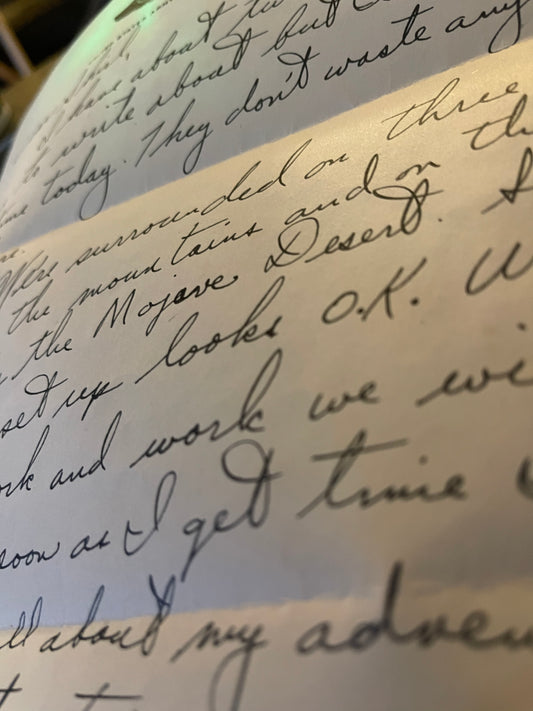 that,
I have about tw
to write about but
time today. They don't waste any
We're surrounded on three
the mountains and on th
the Mojave Desert. S
set up looks O.K. W
ork and work we wi
soon as I get time
ll about my adven